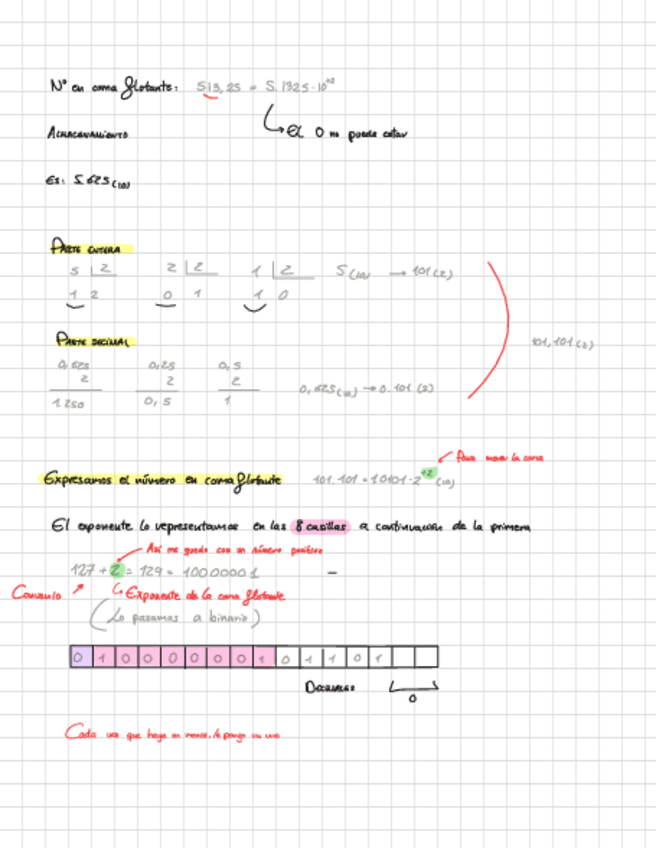 Nº en coma flotante: 513,25 = 5.1325·10⁺²
↳ El 0 no puede estar
ALMACENAMIENTO
EJ: 5.625(10)
PARTE ENTERA
5 |2 2 |2 1 |2 5(10) → 101(2)
1 2 0 1 1 0
101,101(2)
PARTE DECIMAL
0,625 0,25 0,5
2 2 2 0,625(10) → 0.101(2)
1.250 0,5 1
Para mover la coma
Expresamos el número en coma flotante 101.101 = 1.0101·2⁺²(10)
El exponente lo representamos en las 8 casillas a continuación de la primera
Así me quedo con un número positivo
127 + 2 = 129 = 10000001 –
Convenio Exponente de la coma flotante
(Lo pasamos a binario)
0 1 0 0 0 0 0 0 1 0 1 1 0 1
DECIMALES 0
Cada vez que haya un menos, le pongo un uno